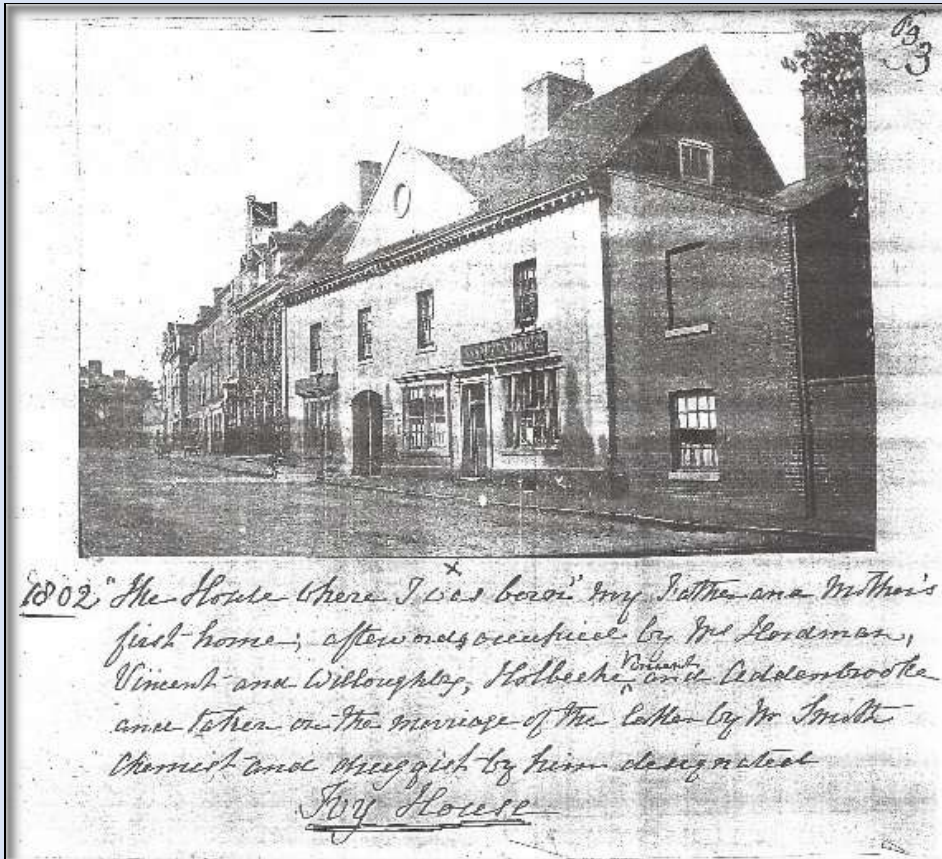 1802 "The House where I was born" my Father and Mother's
first home; afterwards occupied by Mr Hordman,
Vincent and Willoughby, Holbeche Vincent and Addenbrooke
and taken on the marriage of the latter by Mr Smith
Chemist and druggist by him designated
Ivy House